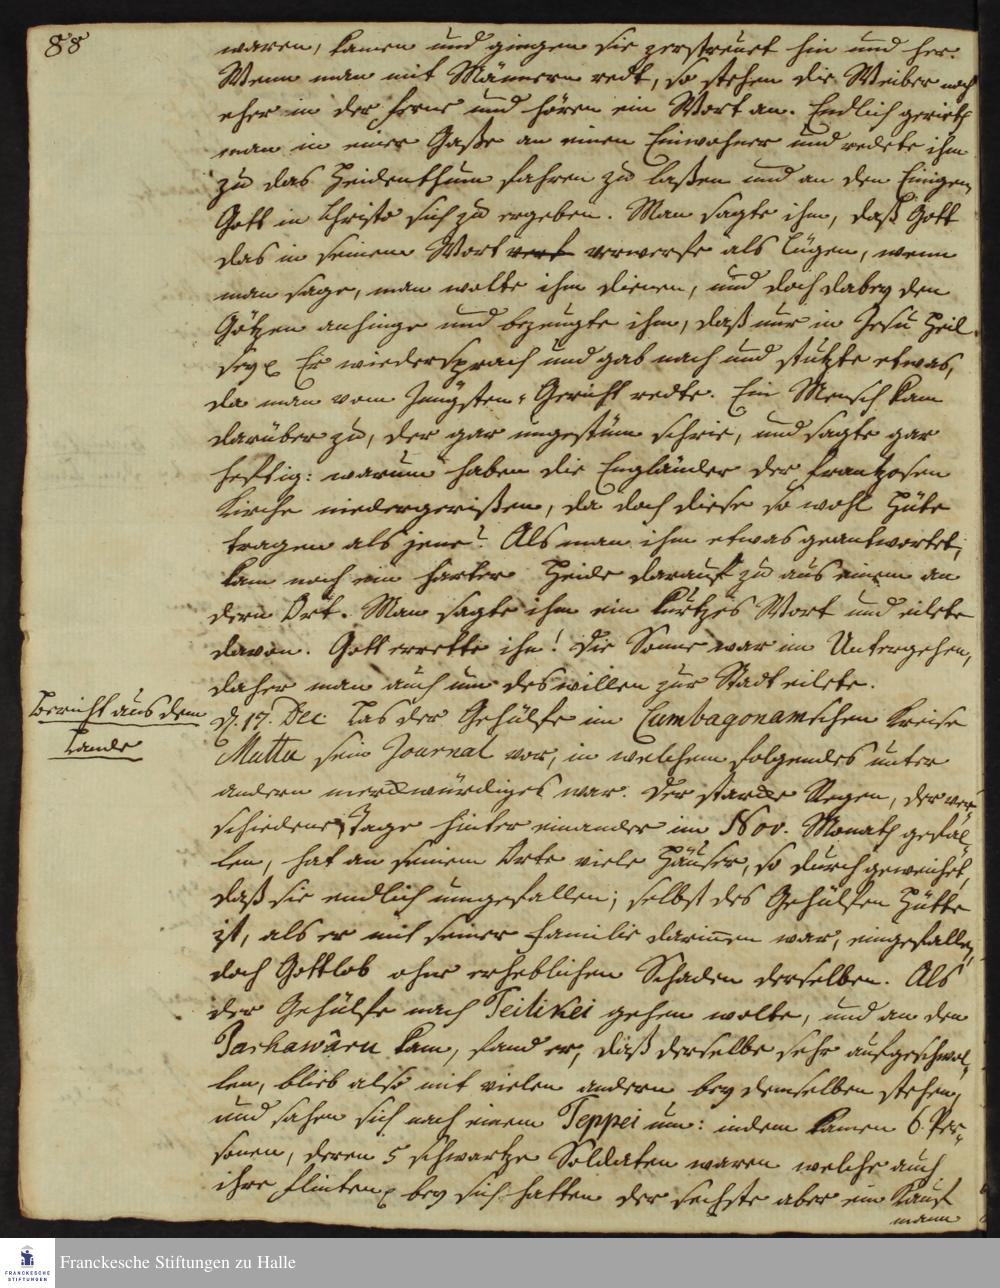 88
waren, kamen und gingen sie zerstreuet hin und her.
Wenn man mit Männern redt, so stehen die Weiber noch
eher in der ferne und hören ein Wort an. Endlich gerieth
man in einer Gaße an einen Einwohner und redete ihm
zu das Heidenthum fahren zu laßen und an den Einigen
Gott in Christo sich zu ergeben. Man sagte ihm, daß Gott
das in seinem Wort verf verwerfe als Lügen, wenn
man sage, man wolte ihm dienen, und doch dabey den
Götzen anhinge und bezeugte ihm, daß nur in Jesu Heil
sey. Er wiedersprach und gab nach und stutzte etwas,
da man vom Jüngsten-Gericht redte. Ein Mensch kam
darüber zu, der gar ungestüm schrie, und sagte gar
heftig: warum haben die Engländer der Frantzosen
Kirche niedergerißen, da doch diese so wohl Hüte
tragen als jene? Als man ihm etwas geantwortet,
kam noch ein harter Heide darauf zu aus einem an
dern Ort. Man sagte ihm ein kurtzes Wort und eilete
davon. Gott errette ihn! Die Sonne war im Untergehen,
daher man auch um deswillen zur Stadt eilete.
Bericht aus dem
Lande
d. 17. Dec. las der Gehülfe im Cumbagonamschen Kreise
Muttu sein Journal vor, in welchem folgendes unter
andern merckwürdiges war. Der starcke Regen, der ver
schiedene Tage hinter einander im Nov. Monath gefal-
len, hat an seinem Orte viele Häuser, so durchgeweichet,
daß sie endlich umgefallen; selbst des Gehülfen Hütte
ist, als er mit seiner Familie darinnen war, eingefallen,
doch Gottlob ohne erheblichen Schaden derselben. Als
der Gehülfe nach Teilikei gehen wolte, und an den
kam, fand er, daß derselbe sehr aufgeschwol-
len, blieb also mit vielen andern bey demselben stehen,
und sahen sich nach einem Teppei um: indem kamen 6 Per-
sonen, deren 5 schwartze Soldaten waren welche auch
ihre Flinten bey sich hatten der sechste aber ein Kauf
mann
Franckesche Stiftungen zu Halle
FRANCKESCHE
STIFTUNGEN